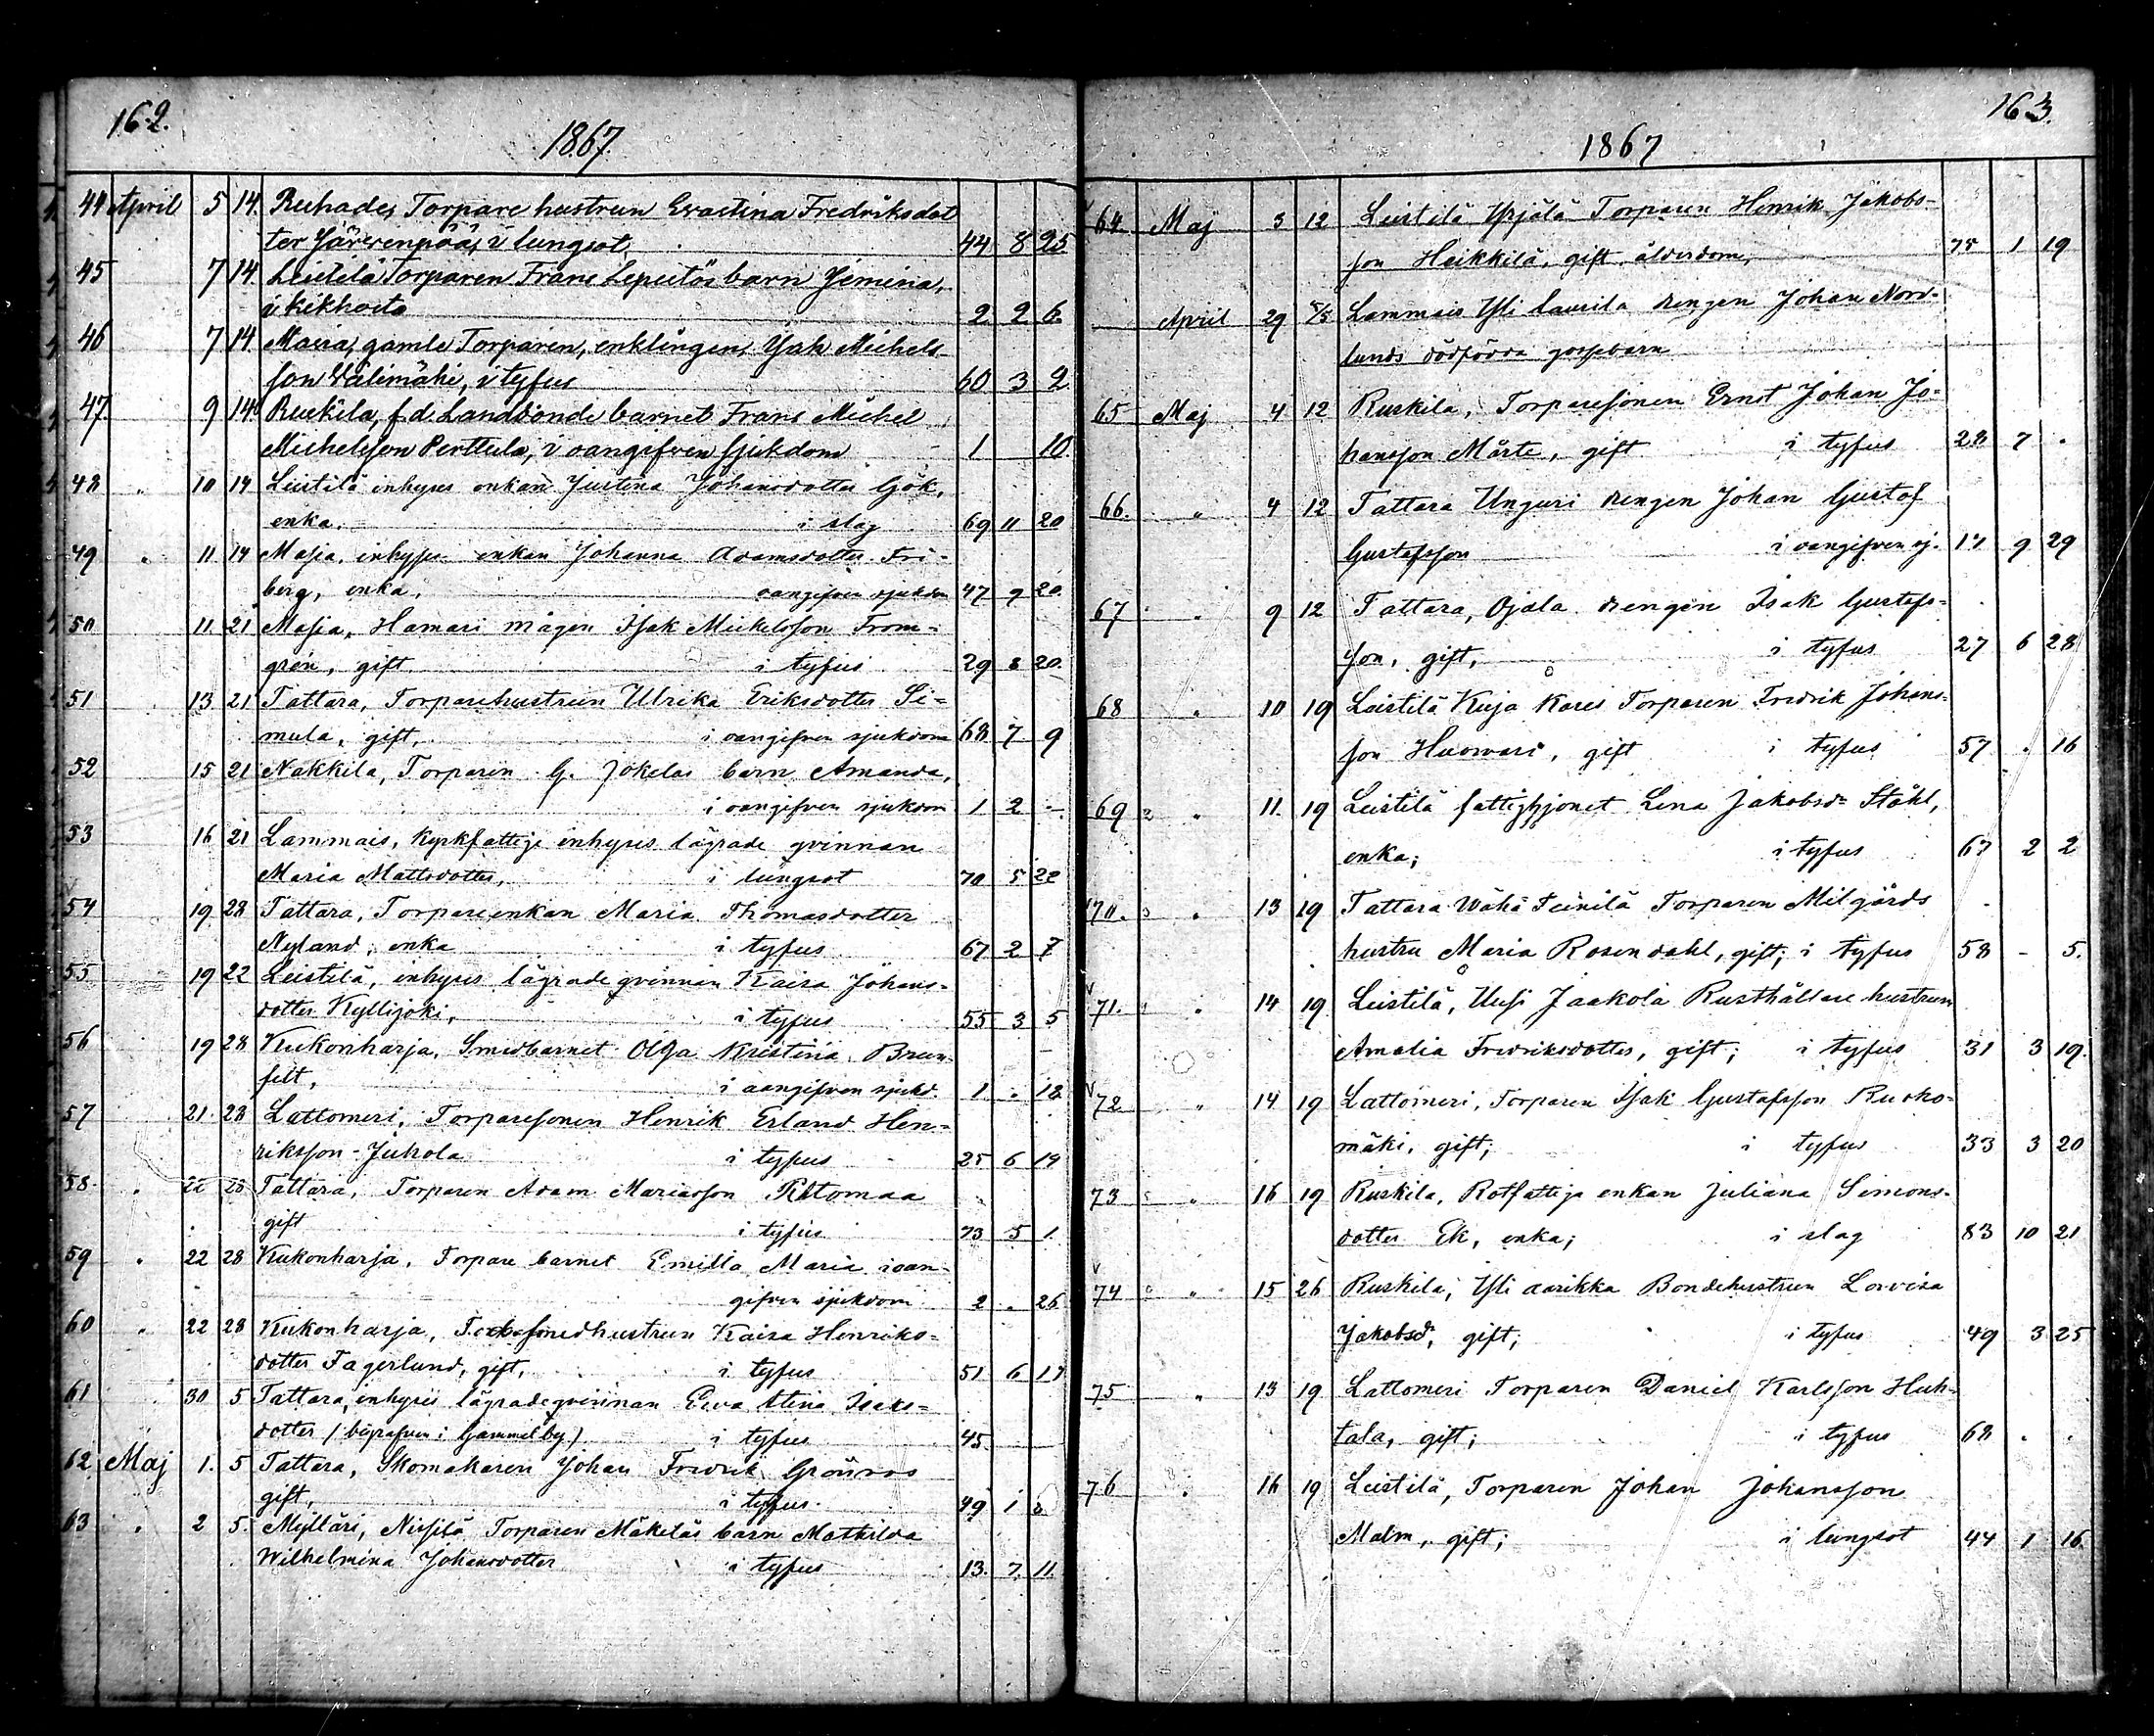 162.
1867.
44 April 5 14. Ruhades Torpare hustrun Evastina Fredriksdot
ter Järvenpää, i lungsot, 44 8 25
45 7 14. Leistilä Torparen Frans barn
i kikhosta 2 2 6.
46 7 14 gamle Torparen, enklingen, Isak Michels
son Välimäki, i tyfus 60 3 2.
47. 9 14 Ruskila, f.d. Landbonde barnet Frans Michel
Michelsson Perttula, i oangifven sjukdom 1 10.
48 " 10 14 Leistilä inhyses enkan Justina Johansdotter Gök,
enka. i slag 69 11 20
49 " 11. 14 Masia, inhyses enkan Johanna Adamsdotter Fri-
berg, enka, oangifven sjukdom 47 9 20.
50 11 21 Masia, Hamari mågen Isak Mickelsson From-
grén, gift i tyfus 29 8 20.
51 13 21 Tattara, Torparehustrun Ulrika Eriksdotter Si=
mula, gift, i oangifven sjukdom 68 7 9
52 15 21 Nakkila, Torparen G. Jokelas barn Amanda,
i oangifven sjukdom 1 2 -
53 16 21 Lammais, Kyrkfattige inhyses lägrade qvinnan
Maria Mattsdotter, i lungsot 70 5 22
54 19 28 Tattara, Torpareenkan Maria Thomasdotter
Nyland, enka i tyfus 67 2 7
55 19 22 Leistilä, inhyses lägrade qvinnan Kaisa Johans-
dotter Kyllijoki, i tyfus 55 3 5
56 19 28 Kukonharja, Smedbarnet Olga Kristina Brun-
felt, i oangifven sjukd. 1 . 18
57 21. 28 Lattomeri, Torparesonen Henrik Erland Hen=
riksson-Juhola i tyfus 25 6 14
58. " 22 28 Tattara, Torparen Adam Mariasson Ritomaa
gift i tyfus 73 5 1
59 " 22 28 Kukonharja, Torpare barnet Emilia Maria i oan-
gifven sjukdom 2 . 26
60 " 22 28 Kukonharja, smedhustrun Kaisa Henriks=
dotter Fagerlund, gift, i tyfus 51 6 17
61 30 5 Tattara, inhyses lägradeqvinnan Eva Stina Isaks=
dotter (begrafven i Gammelby) i tyfus 45
62. Maj 1. 5 Tattara, Skomakaren Johan Fredrik Grönros
gift, i tyfus. 49 1
63 " 2 5. Mylläri, Torparen Mäkeläs barn Mathilda
Wilhelmina Johansdotter i tyfus 13. 7. 11.
163.
1867
64 Maj 3 12 Leistilä Yrjälä Torparen Henrik Jakobs-
son Heikkilä, gift, ålderdom, 75 1 19
April 29 5/5 Lammais Yli Laurila drengen Johan Nord-
lunds dödfödda gossebarn
65 Maj 4 12 Ruskila, Torparesonen Ernst Johan Jo=
hansson Mårte, gift i tyfus 28 7 .
66. " 4 12 Tattara Unguri drengen Johan Gustaf
Gustafsson i oangifven sj. 17 9 29
67 " 9 12 Tattara, Ojala drengen Isak Gustafs=
son, gift, i tyfus 27 6 28
68 " 10 19 Leistilä Kuja Kares Torparen Fredrik Johans-
son Huovari, gift i tyfus 57 . 16
69 " 11. 19 Leistilä fattighjonet Lena Jakobsd= Ståhl,
enka; i tyfus 67 2 2
70. " 13 19 Tattara Wähä Teinilä Torparen Milgårds
hustru Maria Rosendahl, gift; i tyfus 58 - 5.
71. " 14 19 Leistilä, Uusi Jaakola Rusthållare hustrun
Amalia Fredriksdotter, gift; i tyfus 31 3 19.
72 " 14 19 Lattomeri, Torparen Isak Gustafsson Rusko=
mäki, gift; i tyfus 33 3 20
73 " 16 19 Ruskila, Rotfattige enkan Juliana Simons-
dotter Ek, enka; i slag 83 10 21
74 " 15 26 Ruskila, Yli aarikka Bondehustrun Lovisa
Jakobsdr, gift; i tyfus 49 3 25
75 " 13 19 Lattomeri Torparen Daniel Karlsson Huh-
tala, gift; i tyfus 68 . .
76 . 16 19 Leistilä, Torparen Johan Johansson
Malm, gift; i lungsot 44 1 16.